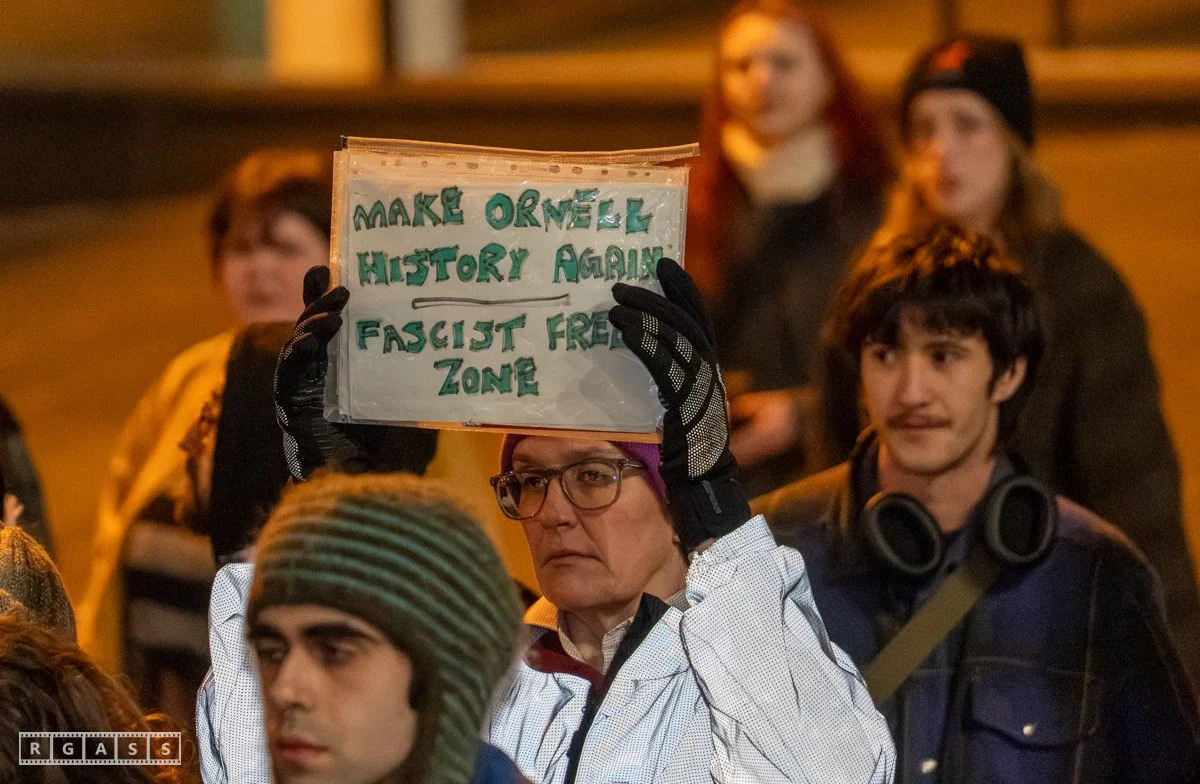 MAKE ORWELL
HISTORY AGAIN
FASCIST FREE
ZONE
RGASS